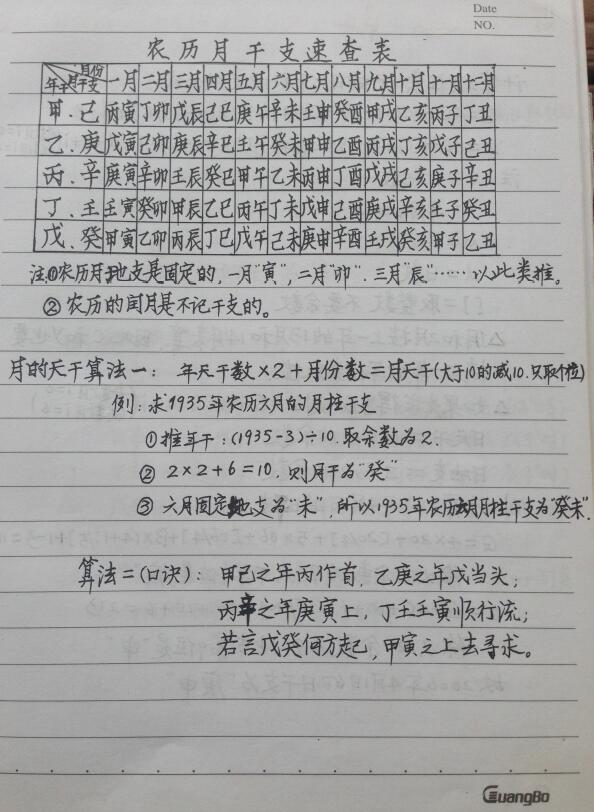 Date
NO.
农历月干支速查表
年干 月干支 月份 一月 二月 三月 四月 五月 六月 七月 八月 九月 十月 十一月 十二月
甲.己 丙寅 丁卯 戊辰 己巳 庚午 辛未 壬申 癸酉 甲戌 乙亥 丙子 丁丑
乙.庚 戊寅 己卯 庚辰 辛巳 壬午 癸未 甲申 乙酉 丙戌 丁亥 戊子 己丑
丙.辛 庚寅 辛卯 壬辰 癸巳 甲午 乙未 丙申 丁酉 戊戌 己亥 庚子 辛丑
丁.壬 壬寅 癸卯 甲辰 乙巳 丙午 丁未 戊申 己酉 庚戌 辛亥 壬子 癸丑
戊.癸 甲寅 乙卯 丙辰 丁巳 戊午 己未 庚申 辛酉 壬戌 癸亥 甲子 乙丑
注:①农历月地支是固定的,一月"寅",二月"卯".三月"辰"……以此类推。
②农历的闰月是不记干支的。
月的天干算法一: 年天干数×2+月份数=月天干(大于10的减10.只取个位)
例:求1935年农历六月的月柱干支
①推年干:(1935-3)÷10.取余数为2.
② 2×2+6=10,则月干为"癸"
③ 六月固定地支为"未",所以1935年农历六月月柱干支为"癸未".
算法二(口诀): 甲己之年丙作首,乙庚之年戊当头;
丙辛之年庚寅上,丁壬壬寅顺行流;
若言戊癸何方起,甲寅之上去寻求。
GuangBo